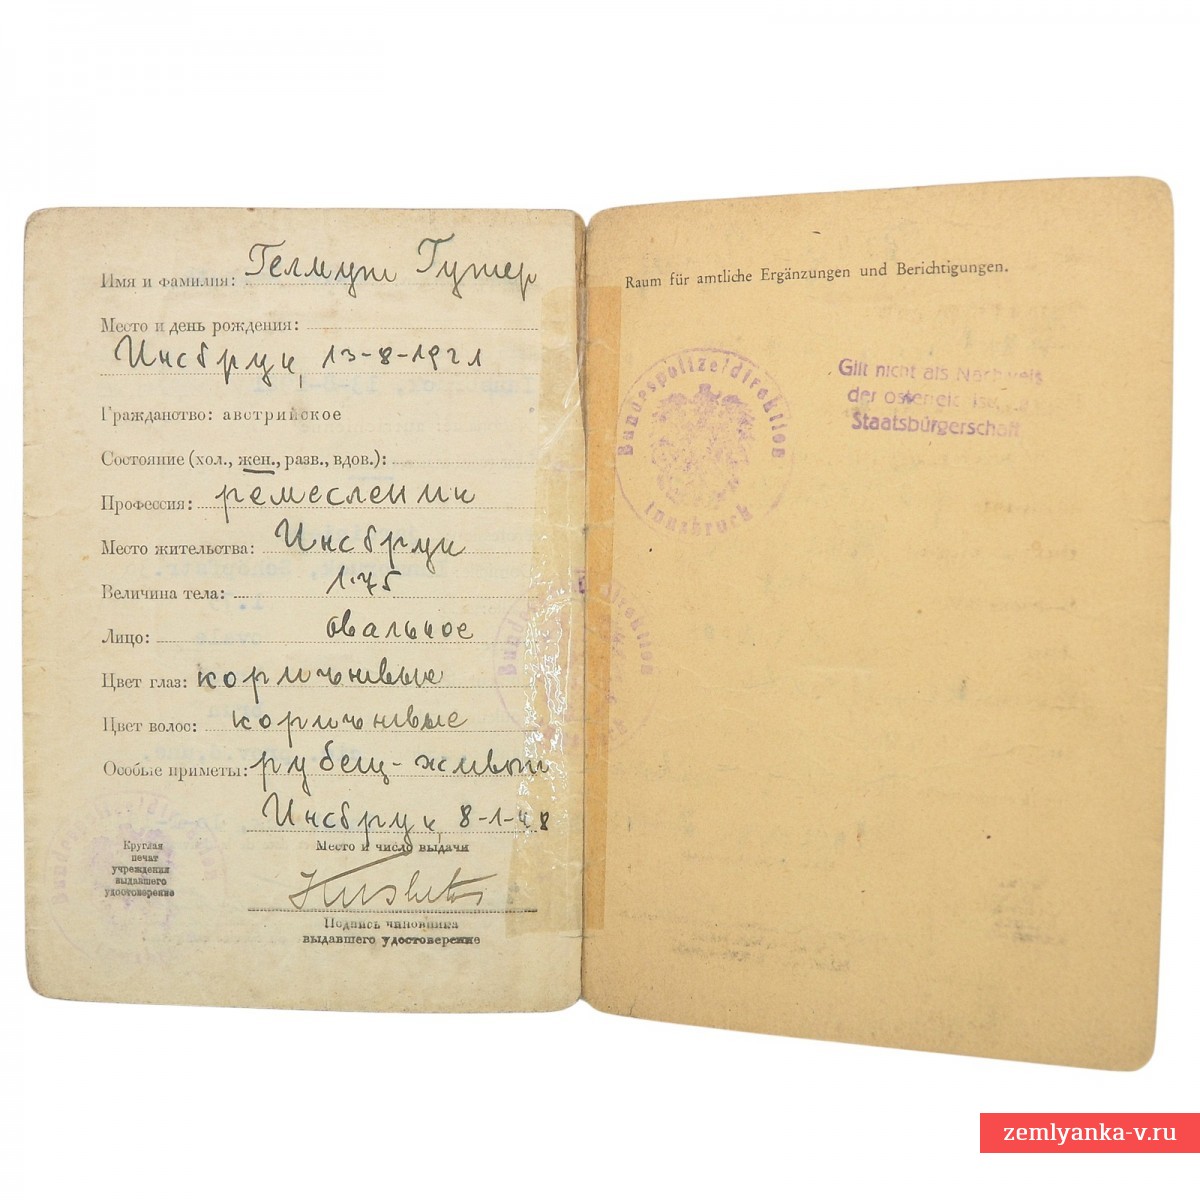 Имя и фамилия: Гелмут Гутер
Место и день рождения:
Инсбрук, 13-8-1921
Гражданство: австрийское
Состояние (хол., жен., разв., вдов.):
Профессия: ремесленик
Место жительства: Инсбрук
Величина тела: 1.75
Лицо: овальное
Цвет глаз: коричнивые
Цвет волос: коричнивые
Особые приметы: рубец-живот
Инсбрук, 8-1-48
Место и число выдачи
Круглая
печат
учреждения
выдавшего
удостоверение
Подпись чиновника
выдавшего удостоверение
Raum für amtliche Ergänzungen und Berichtigungen.
Bundespolizeidirektion
Innsbruck
Gilt nicht als Nachweis
der österreich
Staatsbürgerschaft
zemlyanka-v.ru